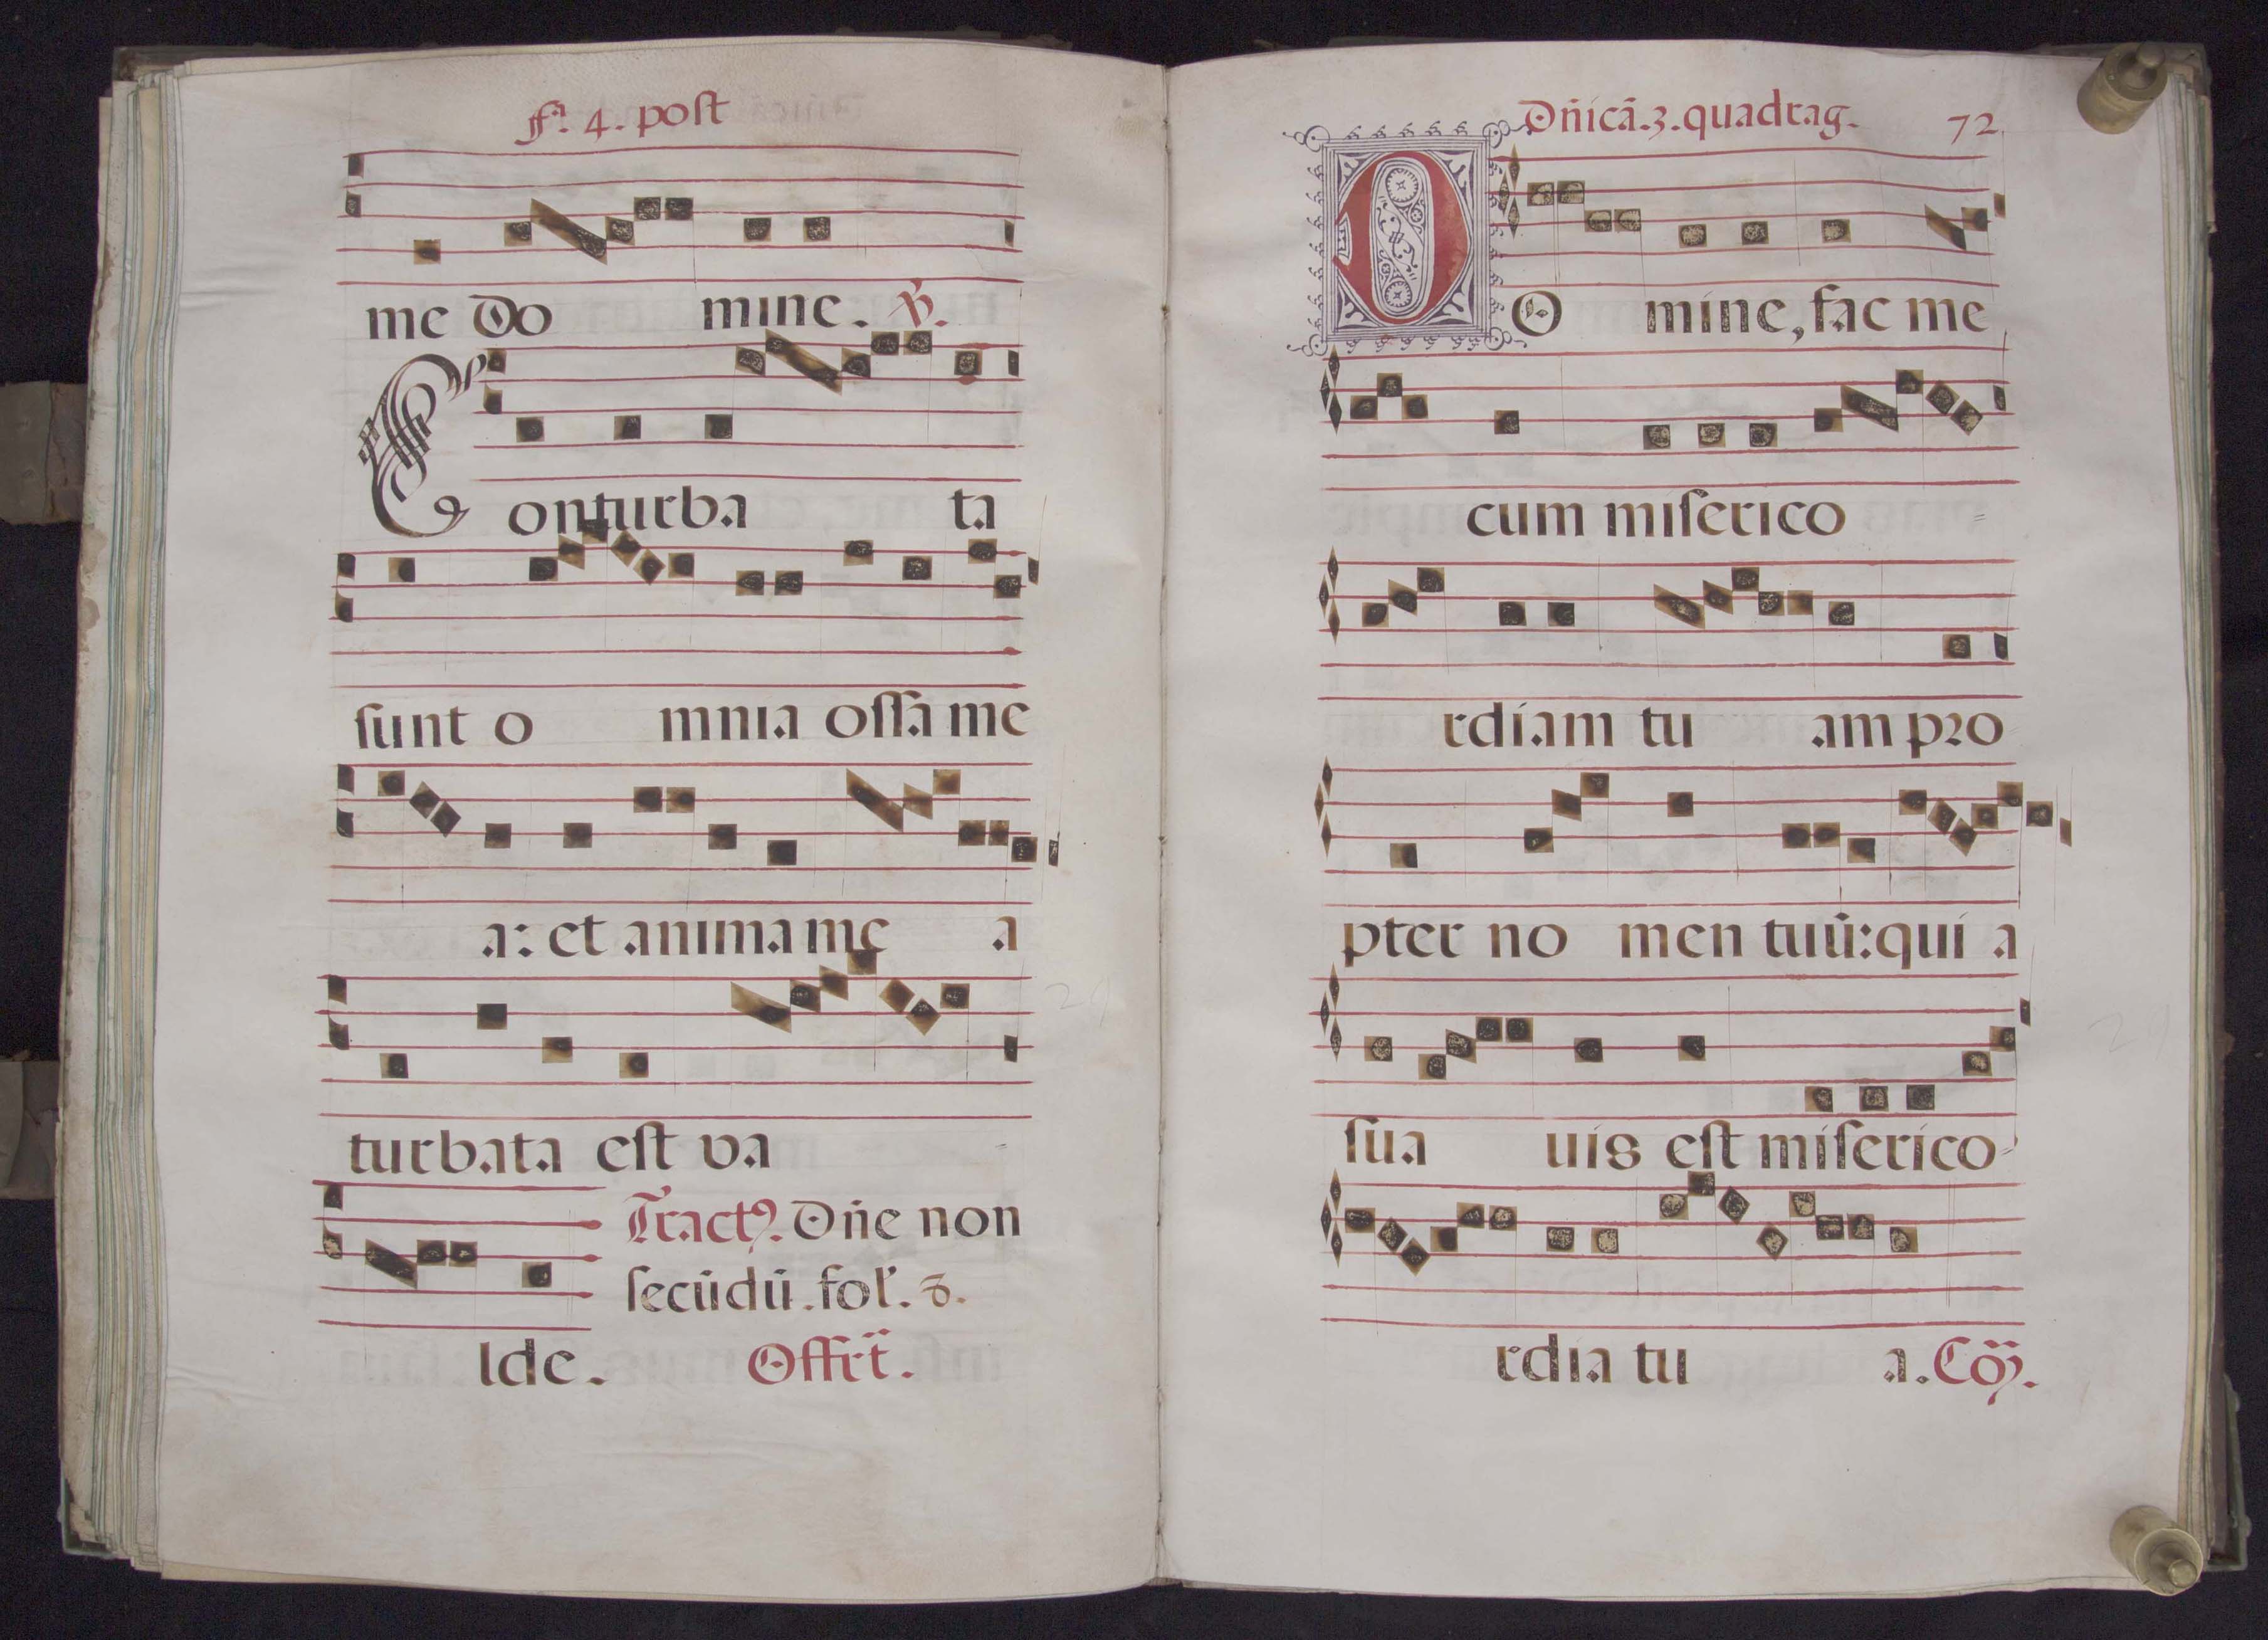 fª. 4. post
me Do mine. ℣.
Conturba ta
sunt o mnia ossa me
a: et anima me a
turbata est va
Tractꝰ. Dñe non
secūdū. fol. 8.
lde. Offrt̃.
Dñicã. 3. quadrag. 72.
DO mine, fac me
cum miserico=
rdiam tu am pro
pter no men tuū: qui a
sua uis est miserico=
rdia tu a. Cõ.